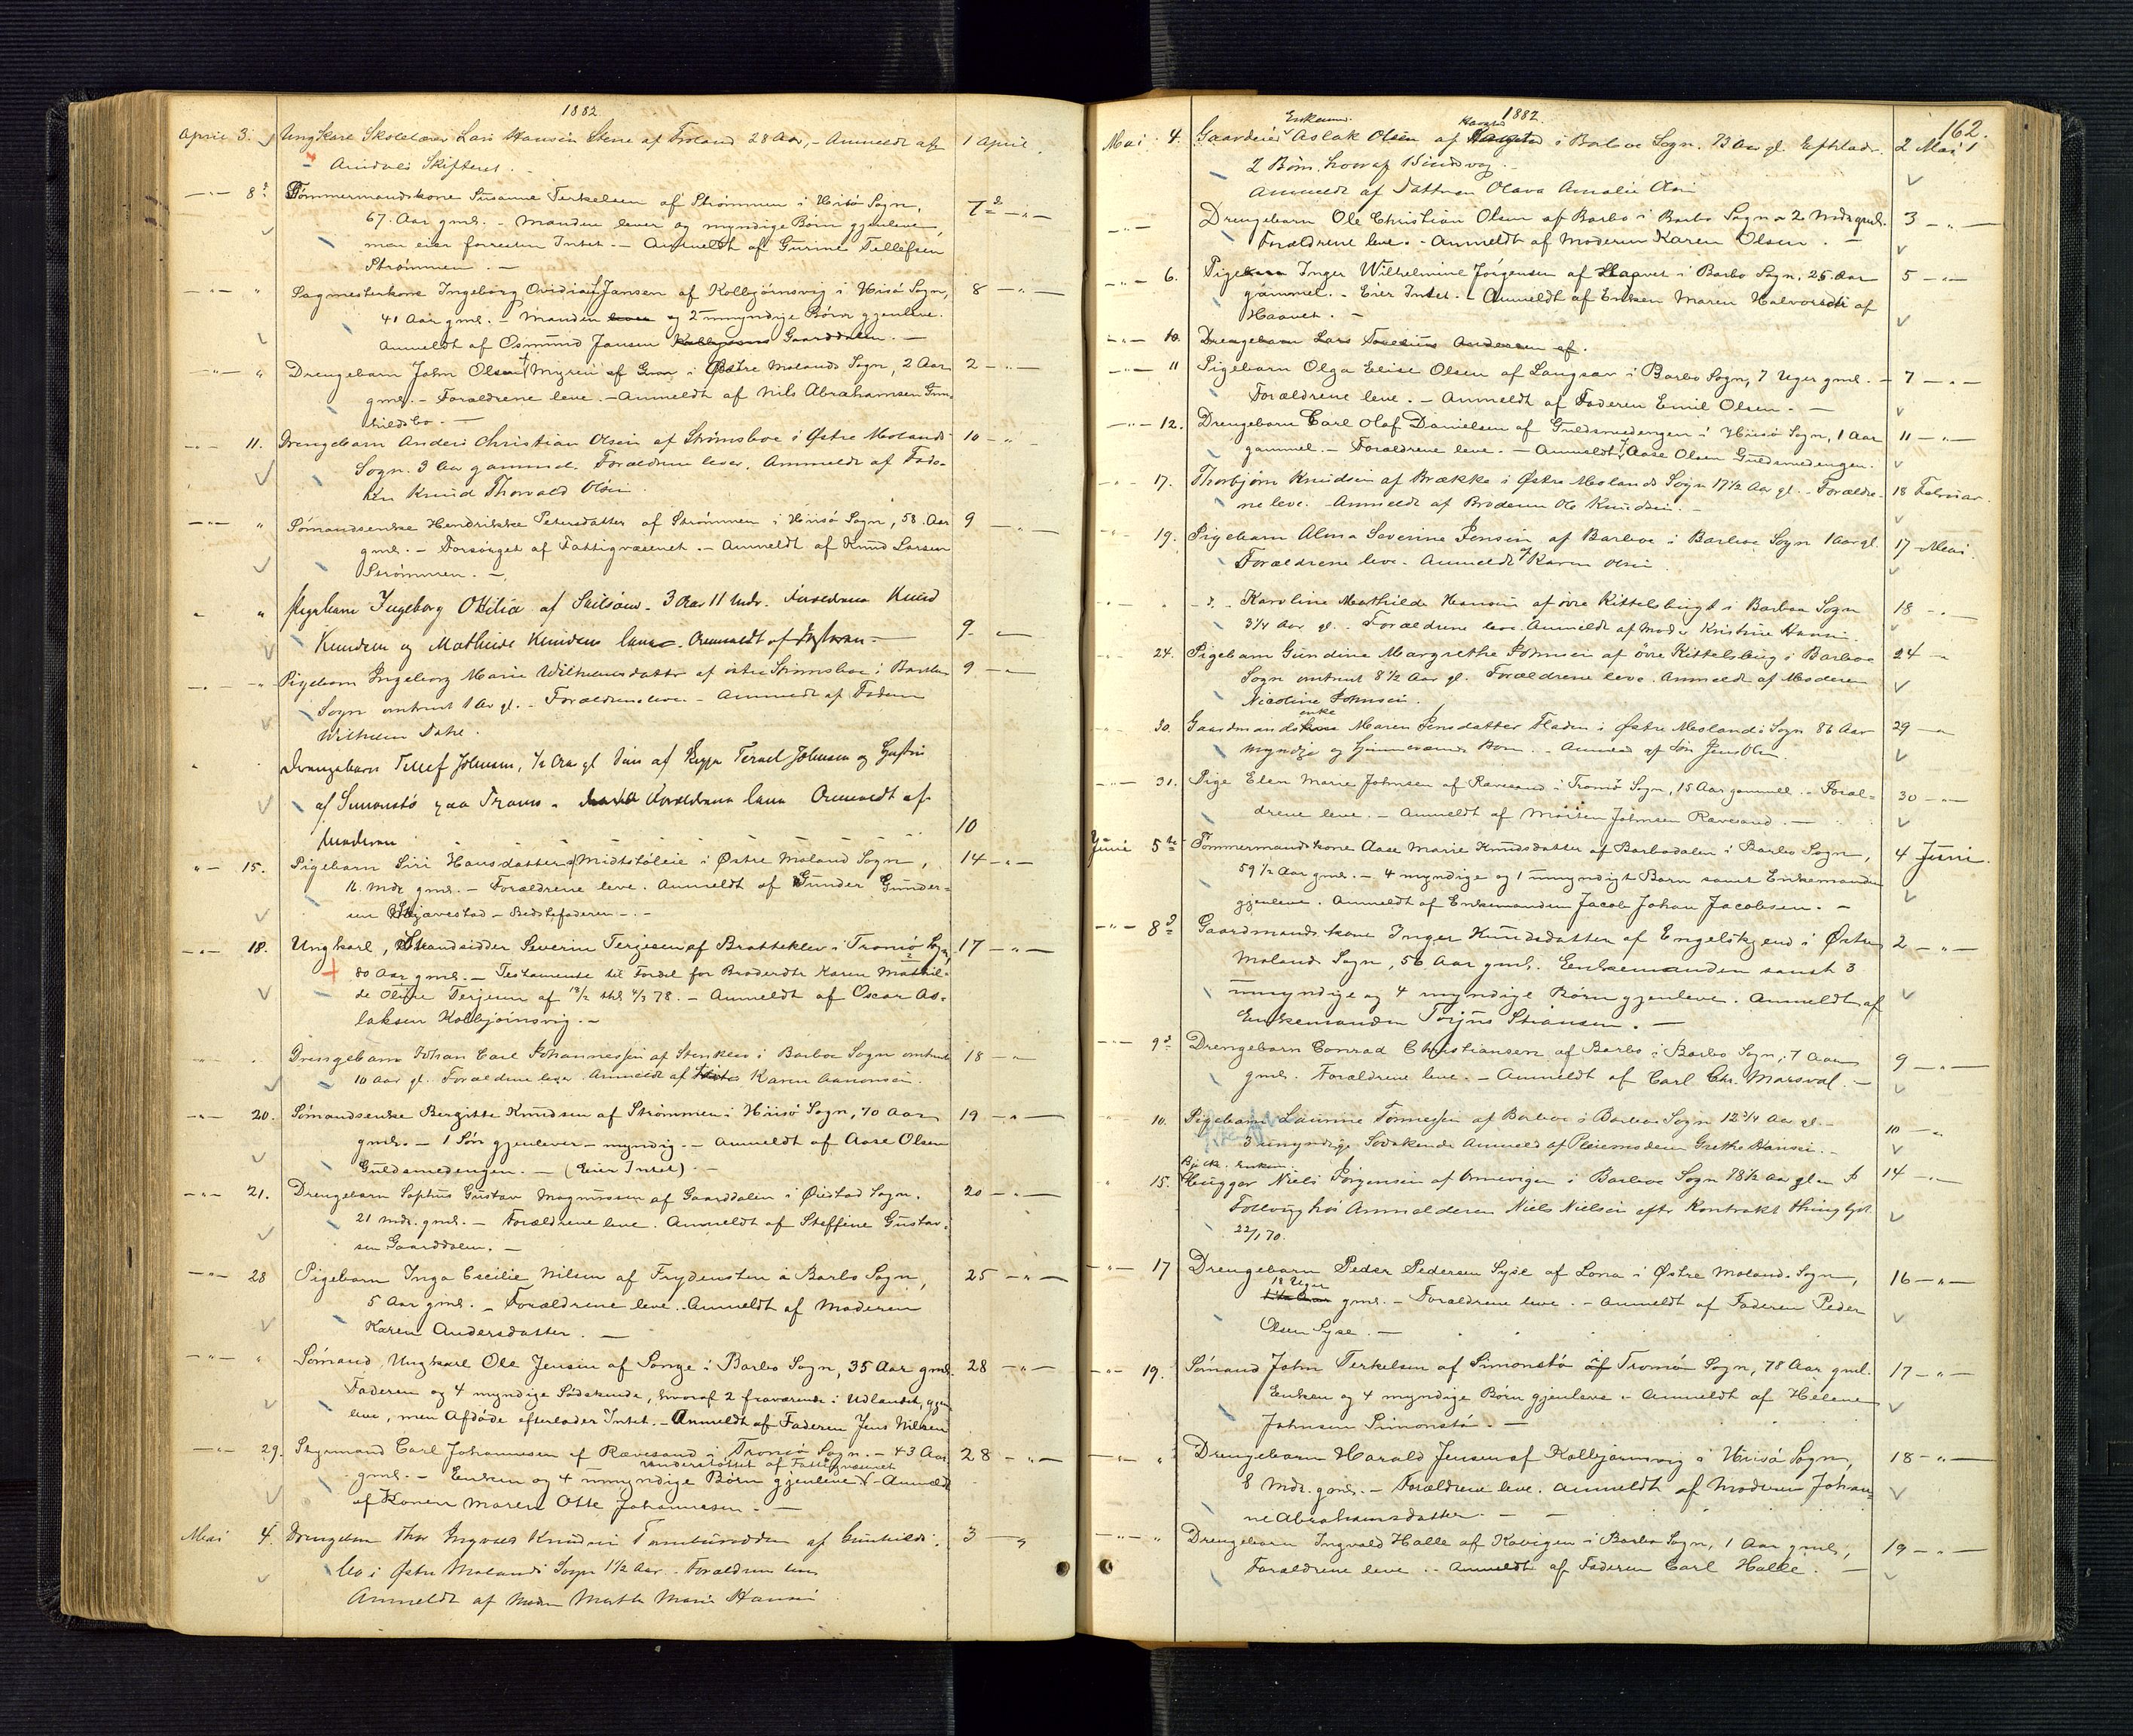 1882.
April 3. Ungkarl Skolelærer Lars Hansen Stene af Froland 28 Aar, - Anmeldt af 1 April.
Arendals Skifteret.
— " — 8de Tømmermandskone Susanne Terkelsen af Strømmen i Hisø Sogn, 7de — " —
67. Aar gml. - Manden lever og myndige Børn gjenleve,
man eier forresten Intet. - Anmeldt af Gurine Tellefsen
Strømmen. —
— " — " Sagmesterkone Ingeborg Jansen af Kolbjørnsvig i Hisø Sogn, 8 — " —
41 Aar gml. - Manden og 2 umyndige Børn gjenleve.
Anmeldt af Osmund Jansen Gaarddalen. —
— " — " Drengebarn John Olsen Myren i Østre Molands Sogn, 2 Aar 2 — " —
gml. - Forældrene leve. - Anmeldt af Nils Abrahamsen Gun-
hildsbo. —
— " — 11. Drengebarn Anders Christian Olsen af Strømsboe i Østre Molands 10 — " —
Sogn. 3 Aar gammel. Forældrene lever. Anmeldt af Fade-
ren Knud Thorvald Olsen.
— " — " Sømandsenke Hendrikke Petersdatter af Strømmen i Hisø Sogn, 58. Aar 9 — " —
gml. - Forsørget af Fattigvæsenet. - Anmeldt af Knud Larsen
Strømmen. —
" " Pigebarn Ingeborg Ottilia af - 3 Aar 11 Mdr. Forældrene Knud
Knudsen og Mathilde Knudsen leve. Anmeldt af 9. —
— " — " Pigebarn Ingeborg Marie Wilhelmsdatter af østre Strømsboe i Barbu 9 — "
Sogn omtrent 1 Aar gl. - Forældrene leve - Anmeldt af Faderen
Wilhelm Dahl.
Drengebarn Tellef Johnsen, 1/2 Aar gl Søn af Terkel Johnsen og
af Simonstø paa Tromø. Forældrene leve Anmeldt af
10
" — 15. Pigebarn Siri Hansdatter Midtstøleie i Østre Moland Sogn, 14 — " —
16. Mdr gml. - Forældrene leve. Anmeldt af Gunder Gunder-
sen Skjævestad - Bedstefaderen -. -
— " — 18. Ungkarl, Strandsidder Severin Terjesen af Bratteklev i Tromø Sogn, 17 — " —
80 Aar gml. - Testamente til Fordel for Broderdtr Karen Mathil-
de Oline Terjesen af 18/2 78. - Anmeldt af Oscar As-
laksen Kolbjørnsvig. —
Drengebarn Johan Carl Johannessen af Stenklev i Barboe Sogn omtrent 18 — "
10 Aar gl. Forældrene lever Anmeldt af Karen Aanonsen.
— " — 20. Sømandsenke Bergitte Knudsen af Strømmen i Hisø Sogn, 70 Aar 19 — " —
gml. - 1 Søn gjenlever - myndig. - Anmeldt af Aase Olsen
Guldsmedengen. — (Eier Intet) —
— " — 21. Drengebarn Sophus Gustav Magnussen af Gaarddalen i Øiestad Sogn. 20 — " —
21 Mdr. gml. - Forældrene leve. Anmeldt af Steffine Gustav-
sen Gaarddalen. —
— " — 28 Pigebarn Inga Cecilie Nilsen af Frydensten i Barbo Sogn, 25 — " —
5 Aar gml. - Forældrene leve. Anmeldt af Moderen
Karen Andersdatter. —
— " — " Sømand, Ungkarl Ole Jensen af Songe i Barbo Sogn, 35 Aar gml. 28 — " —
Faderen og 4 myndige Sødskende, hvoraf 2 fraværende i Udlandet, gjen-
leve, men Afdøde efterlader Intet. - Anmeldt af Faderen Jens Nilsen
— " — 29. Styrmand Carl Johannesen af Rævesand i Tromø Sogn. - 43 Aar 28 — " —
understøttet af Fattigvæsenet
gml. - Enken og 4 umyndige Børn gjenleve - Anmeldt
af Konen Maren Otte Johannesen. —
Mai 4. Drengebarn Thor Ingvald Knudsen af Gunhilds- 3 — "
bo i Østre Molands Sogn 1 1/2 Aar. Forældrene leve
Anmeldt af Moder Marthe Marie Hansen
1882.
162.
Enkem.
Mai 4. Gaardeier Aslak Olsen af i Barboe Sogn. 73 Aar gl. Efterlader 2 Mai
2 Børn, hvoraf
Anmeldt af Datteren Olava Amalie Olsen
— " — Drengebarn Ole Christian Olsen af Barbo i Barbo Sogn - 2 Mdr gml. 3 — " —
Forældrene leve. - Anmeldt af Moderen Karen Olsen. —
— " — 6. Pige Inger Wilhelmine Jørgensen af Haavet i Barbo Sogn, 25. Aar 5 — " —
gammel. - Eier Intet. - Anmeldt af Enken Maren Halvorsen af
Haavet. —
— " — 10. Drengebarn Lars Andersen af.
— " — 11 Pigebarn Olga Elise Olsen af Langsæv i Barbo Sogn, 7 Uger gml. - 7 — " —
Forældrene leve. - Anmeldt af Faderen Emil Olsen. —
— " — 12. Drengebarn Carl Olaf Danielsen af Guldsmedengen i Hisø Sogn, 1 Aar 11 — " —
gammel. - Forældrene leve. - Anmeldt af Aase Olsen Guldsmedengen.
17. Thorbjørn Knudsen af Brække i Østre Molands Sogn 17 1/2 Aar gl. - Forældre- 18 Februar.
ne leve. Anmeldt af Broderen Ole Knudsen. -
19. Pigebarn Alma Severine Jensen af Barboe i Barboe Sogn 1 Aar gl. 17 Mai.
Forældrene leve. Anmeldt af Karen Olsen
Karoline Mathilde Hansen af øvre Kittelsbugt i Barboe Sogn 18 — "
3 1/4 Aar gl. - Forældrene leve. Anmeldt af Moder Kristine Hansen.
24. Pigebarn Gundine Margrethe Johnsen af øvre Kittelsbug i Barboe 24 —
Sogn omtrent 8 1/2 Aar gl. Forældrene leve. Anmeldt af Moderen
Nicoline Johnsen.
enke
30. Gaardmandskone Maren Jensdatter Fladen i Østre Molands Sogn 86 Aar 29 —
myndige og Børn. - Anmeldt af Søn Jens Olsen.
— " — 31. Pige Elen Marie Johnsen af Rævesand i Tromø Sogn, 15 Aar gammel. - Foræl- 30 — " —
drene leve. - Anmeldt af Morten Johnsen Rævesand. —
Juni 5te Tømmermandskone Aase Marie Knudsdatter af Barbodalen i Barbo Sogn, 4 Juni.
59 1/2 Aar gml. - 4 myndige og 1 umyndigt Barn samt Enkemanden
gjenleve. Anmeldt af Enkemanden Jacob Johan Jacobsen. -
— " — 8de Gaardmandskone Inger Knudsdatter af Engelskjend i Østre 2 — " —
Molands Sogn, 56 Aar gml. Enkemanden samt 3
umyndige og 4 myndige Børn gjenleve. Anmeldt af
Enkemanden Torjus Stiansen. —
— " — 9de Drengebarn Conrad Christiansen af Barbo i Barbo Sogn, 7 Aar 9 — " —
gml. Forældrene leve. - Anmeldt af Carl Chr. Marsval. —
10. Pigebarn Laurine Tønnessen af Barboe i Barboe Sogn 12 3/4 Aar gl. - 10 — "
3 umyndige Sødskende Anmeldt af Pleiemoderen Grethe Hansen. -
15. Niels Jørgensen af Ormevigen i Barboe Sogn 78 1/2 Aar gl. 14 — "
Follevig hos Anmelderen Niels Nielsen efter Kontrakt thinglyst
22/1 70.
— " — 17 Drengebarn Peder Pedersen Syse af Lona i Østre Molands Sogn, 16 — " —
18 Uger
gml. - Forældrene leve. - Anmeldt af Faderen Peder
Olsen Syse. —
— " — 19. Sømand John Terkelsen af Simonstø af Tromø Sogn, 78 Aar gml. 17 — " —
Enken og 4 myndige Børn gjenleve. - Anmeldt af Helene
Johnsen Simonstø. —
— " — " Drengebarn Harald Jensen af Kolbjørnsvig i Hisø Sogn, 18 — " —
8 Mdr. gml. - Forældrene leve. Anmeldt af Moderen Johan-
ne Abrahamsdatter. —
— " — " Drengebarn Ingvald Halle af Kovigen i Barbo Sogn, 1 Aar gml, 19 — " —
Forældrene leve. - Anmeldt af Faderen Carl Halle. —